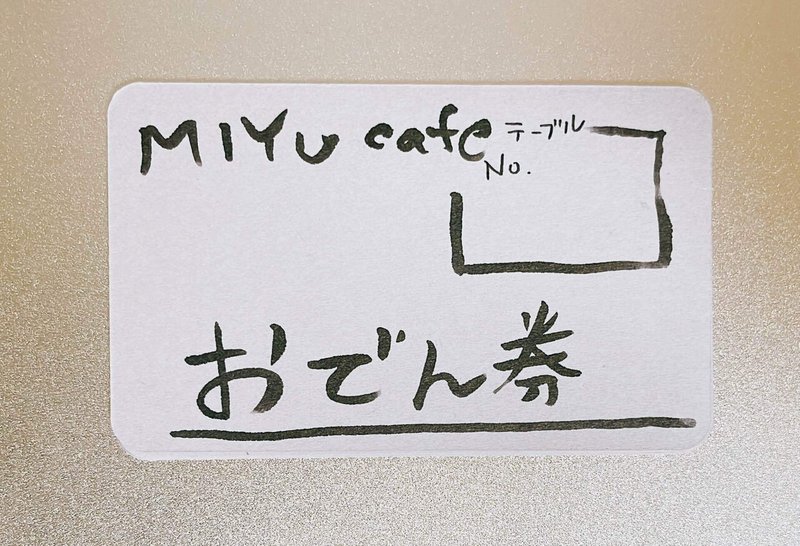 MIYU cafe テーブル
No.
おでん券